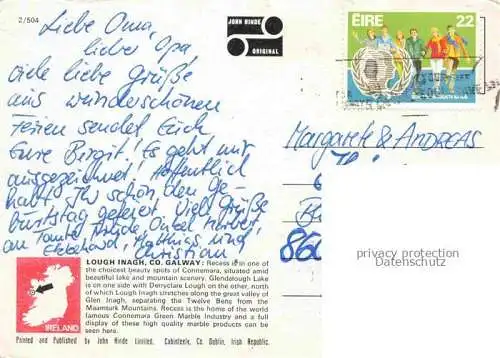 2/504
JOHN HINDE
ORIGINAL
ÉIRE 22
Liebe Oma,
lieber Opa,
viele liebe Grüße
aus wunderschönen
Ferien sendet Euch
Eure Birgit! Es geht mir
ausgezeichnet! Hoffentlich
habt Ihr schön den Ge-
burtstag gefeiert. Viele Grüße
an Tante Onkel Herbert,
Ekkehard, Matthias und
Christian
Margarete & ANDREAS
privacy protection
Datenschutz
LOUGH INAGH, CO. GALWAY: Recess is in one
of the choicest beauty spots of Connemara, situated amid
beautiful lake and mountain scenery. Glendalough Lake
is on one side with Derryclare Lough on the other, north
of which Lough Inagh stretches along the great valley of
Glen Inagh, separating the Twelve Bens from the
Maamturk Mountains. Recess is the home of the world
famous Connemara Green Marble Industry and a full
display of these high quality marble products can be
seen here.
IRELAND
Printed and Published by John Hinde Limited, Cabinteely, Co. Dublin, Irish Republic.